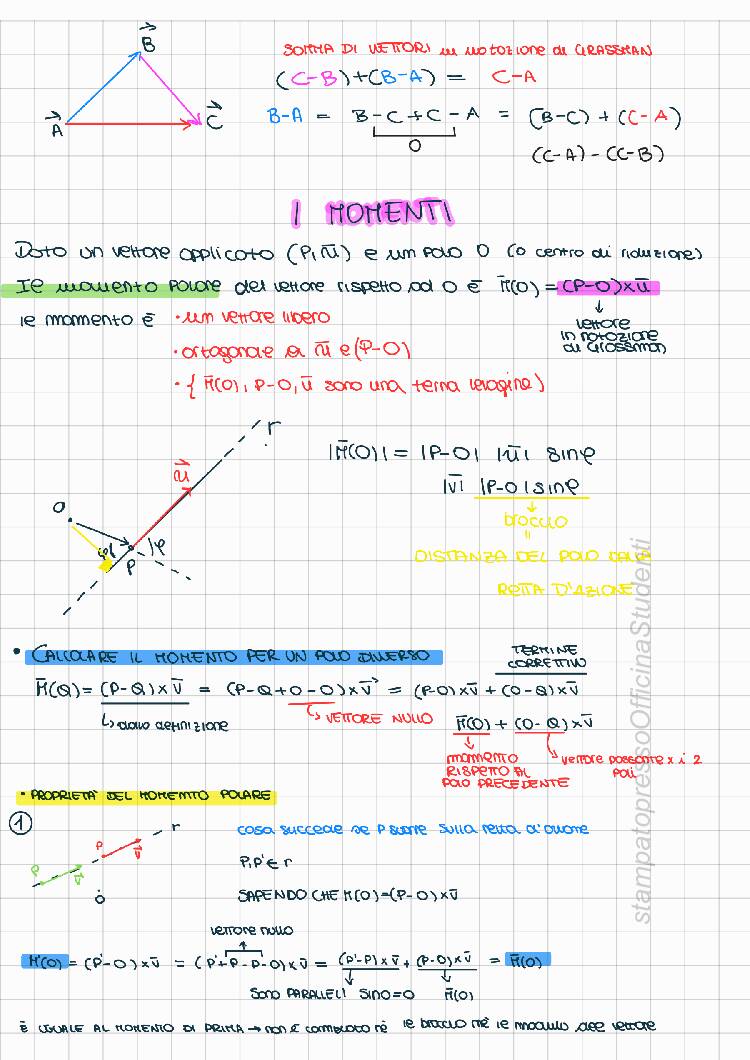 B
A
C
SOMMA DI VETTORI in notazione di GRASSMAN
(C-B)+(B-A) = C-A
B-A = B-C+C-A = (B-C) + (C-A)
0
(C-A)-(C-B)
I MOMENTI
Dato un vettore applicato (P,ū) e un polo O (o centro di riduzione)
Il momento polare del vettore rispetto ad O è M̄(O) = (P-O)×ū
il momento è
• un vettore libero
• ortogonale a ū e (P-O)
• { M̄(O), P-O, ū sono una terna levogira)
↓
vettore
in notazione
di Grossman
r
u
O
φ
φ
P
|M̄(O)| = |P-O| |ū| sinφ
|v̄| |P-O| sinφ
↓
braccio
=
DISTANZA DEL POLO DALLA
RETTA D'AZIONE
• CALCOLARE IL MOMENTO PER UN POLO DIVERSO
TERMINE
CORRETTIVO
M̄(Q) = (P-Q)×v̄ = (P-Q+O-O)×v̄ = (P-O)×v̄ + (O-Q)×v̄
↳ dalla definizione
↳ VETTORE NULLO
M̄(O) + (O-Q)×v̄
momento
RISPETTO AL
POLO PRECEDENTE
vettore passante x i 2
poli
• PROPRIETA' DEL MOMENTO POLARE
1
r
P
v
P
v
O
cosa succede se P scorre sulla retta d'azione
P,P' ∈ r
SAPENDO CHE M(O)=(P-O)×v̄
vettore nullo
M'(O) = (P'-O)×v̄ = (P'+P-P-O)×v̄ = (P'-P)×v̄ + (P-O)×v̄ = M̄(O)
SONO PARALLELI SINO=0
M̄(O)
È UGUALE AL MOMENTO DI PRIMA → non è cambiato nè il braccio nè il modulo del vettore
stampatopressoOfficinaStudenti